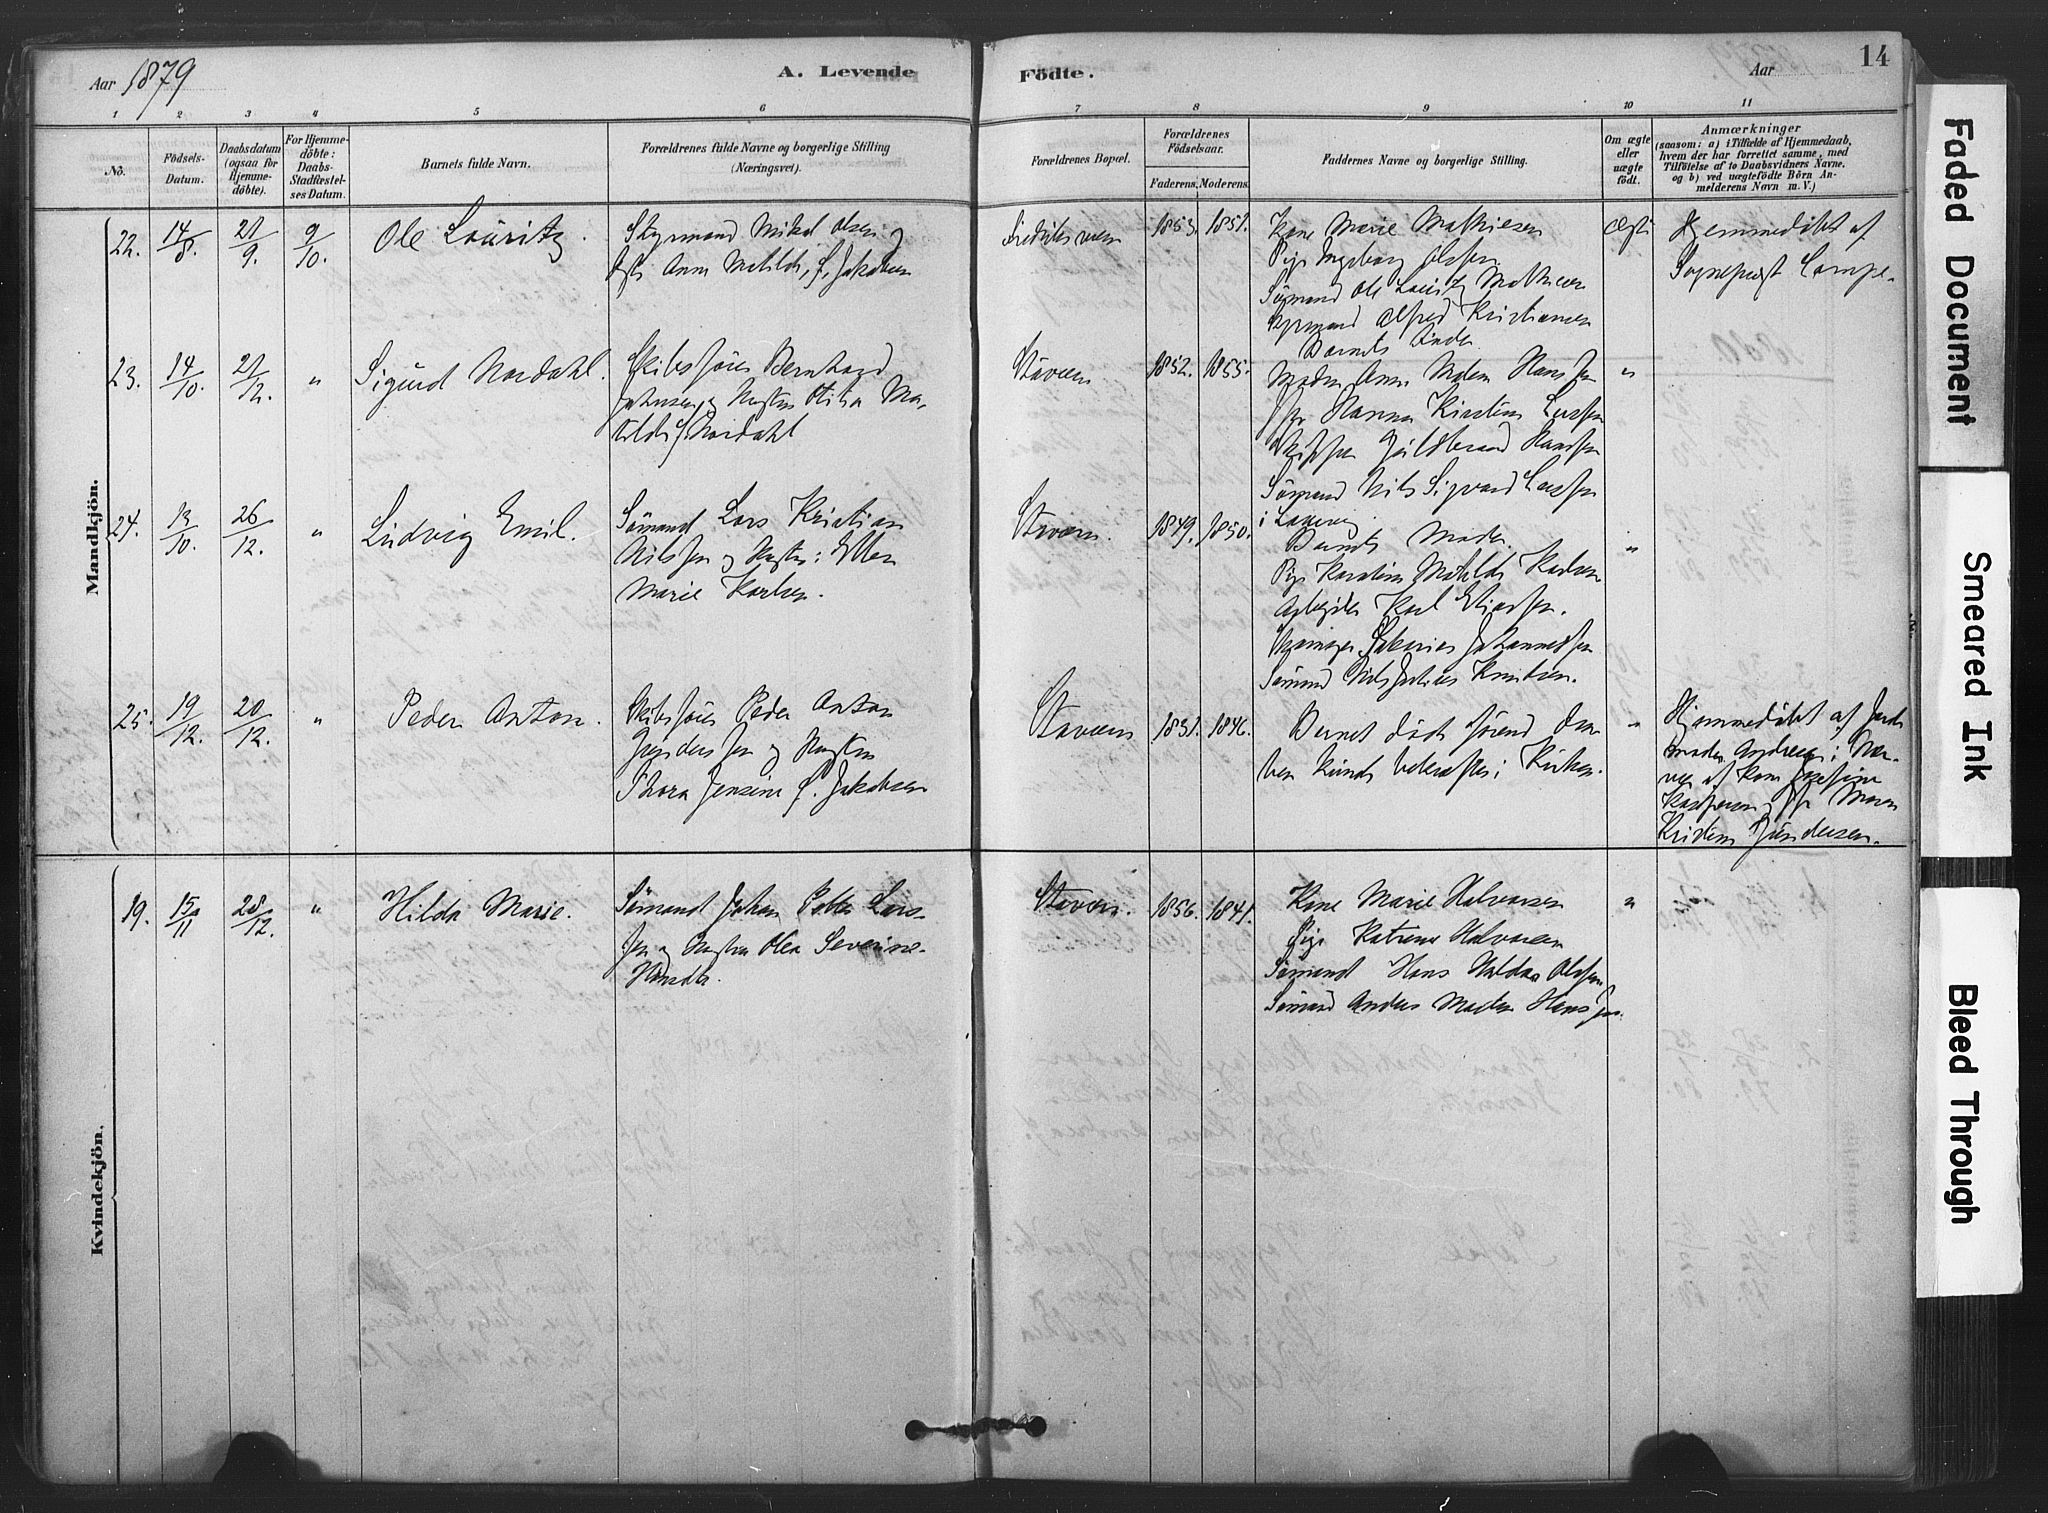 Aar 1879
A. Levende
Födte.
Aar
14
1 2 3 4 5 6 7 8 9 10 11
No.
Födsels-
Datum.
Daabsdatum
(ogsaa for
Hjemme-
döbte).
For Hjemme-
döbte:
Daabs-
Stadfæstel-
ses Datum.
Barnets fulde Navn.
Forældrenes fulde Navne og borgerlige Stilling
(Næringsvei).
Forældrenes Bopæl.
Forældrenes
Födselsaar.
Faderens. Moderens.
Faddernes Navne og borgerlige Stilling.
Om ægte
eller
uægte
födt.
Anmærkninger
(saasom: a) i Tilfælde af Hjemmedaab,
hvem der har forrettet samme, med
Tilföielse af to Daabsvidners Navne,
og b) ved uægtefödte Börn An-
melderens Navn m. V.)
Mandkjön.
22. 14/8. 21/9. 9/10. Ole Lauritz.
Styrmand Mikal Olsen og
Anna Matilde, f. Jakobsen
Fredriksværn 1853. 1851.
Kone Marie Mathiesen
Pige Ingeborg Olsen
Sömand Ole Lauritz Mathisen
Styrmand Alfred Kristiansen
Barnets Fader
ægte
Hjemmedöbt af
Sogneprest Campe.
23. 14/10. 21/12. " Sigurd Nordahl.
Skibsförer Bernhard
Johnsen og Hustru Otilia Ma-
tilde f. Nordahl
Staværn. 1852. 1855.
Madm Anne Malene Hansen
Hanna Kirstine Larsen
Skipper Hansen
Sömand Nils Sigvard Larsen
i Laurvig.
"
24. 13/10. 26/12. " Ludvig Emil.
Sömand Lars Kristian
Nilssen og Hustru: Ellen
Marie Karlsen.
Staværn. 1849. 1850.
Barnets Moder.
Pige Karoline Matilde Karlsen
Arbeider Karl Eliassen.
Sakarias Johannessen
Sömand Nils Julius Knudsen.
"
25. 19/12. 20/12. " Peder Anton.
Skibsförer Peder Anton
Gundersen og Hustru
Thora Jensine f. Jakobsen
Staværn 1831. 1846.
Barnet döde förend Daa-
ben kunde bekræftes i Kirken.
"
Hjemmedöbt af Jord-
moder Andrea i Nær-
vær af Kone Josefine
Kaspersen og Maren
Kristine Gundersen.
Kvindekjön.
19. 15/11 28/12. " Hilda Marie.
Sömand Johan Petter Lars-
sen og Hustru Olea Severine
Staværn. 1856. 1841.
Kone Marie Halvorsen
Pige Katrine Halvorsen
Sömand Hans Haldor Olsen
Sömand Anders Martin Hansen.
"
Faded Document
Smeared Ink
Bleed Through